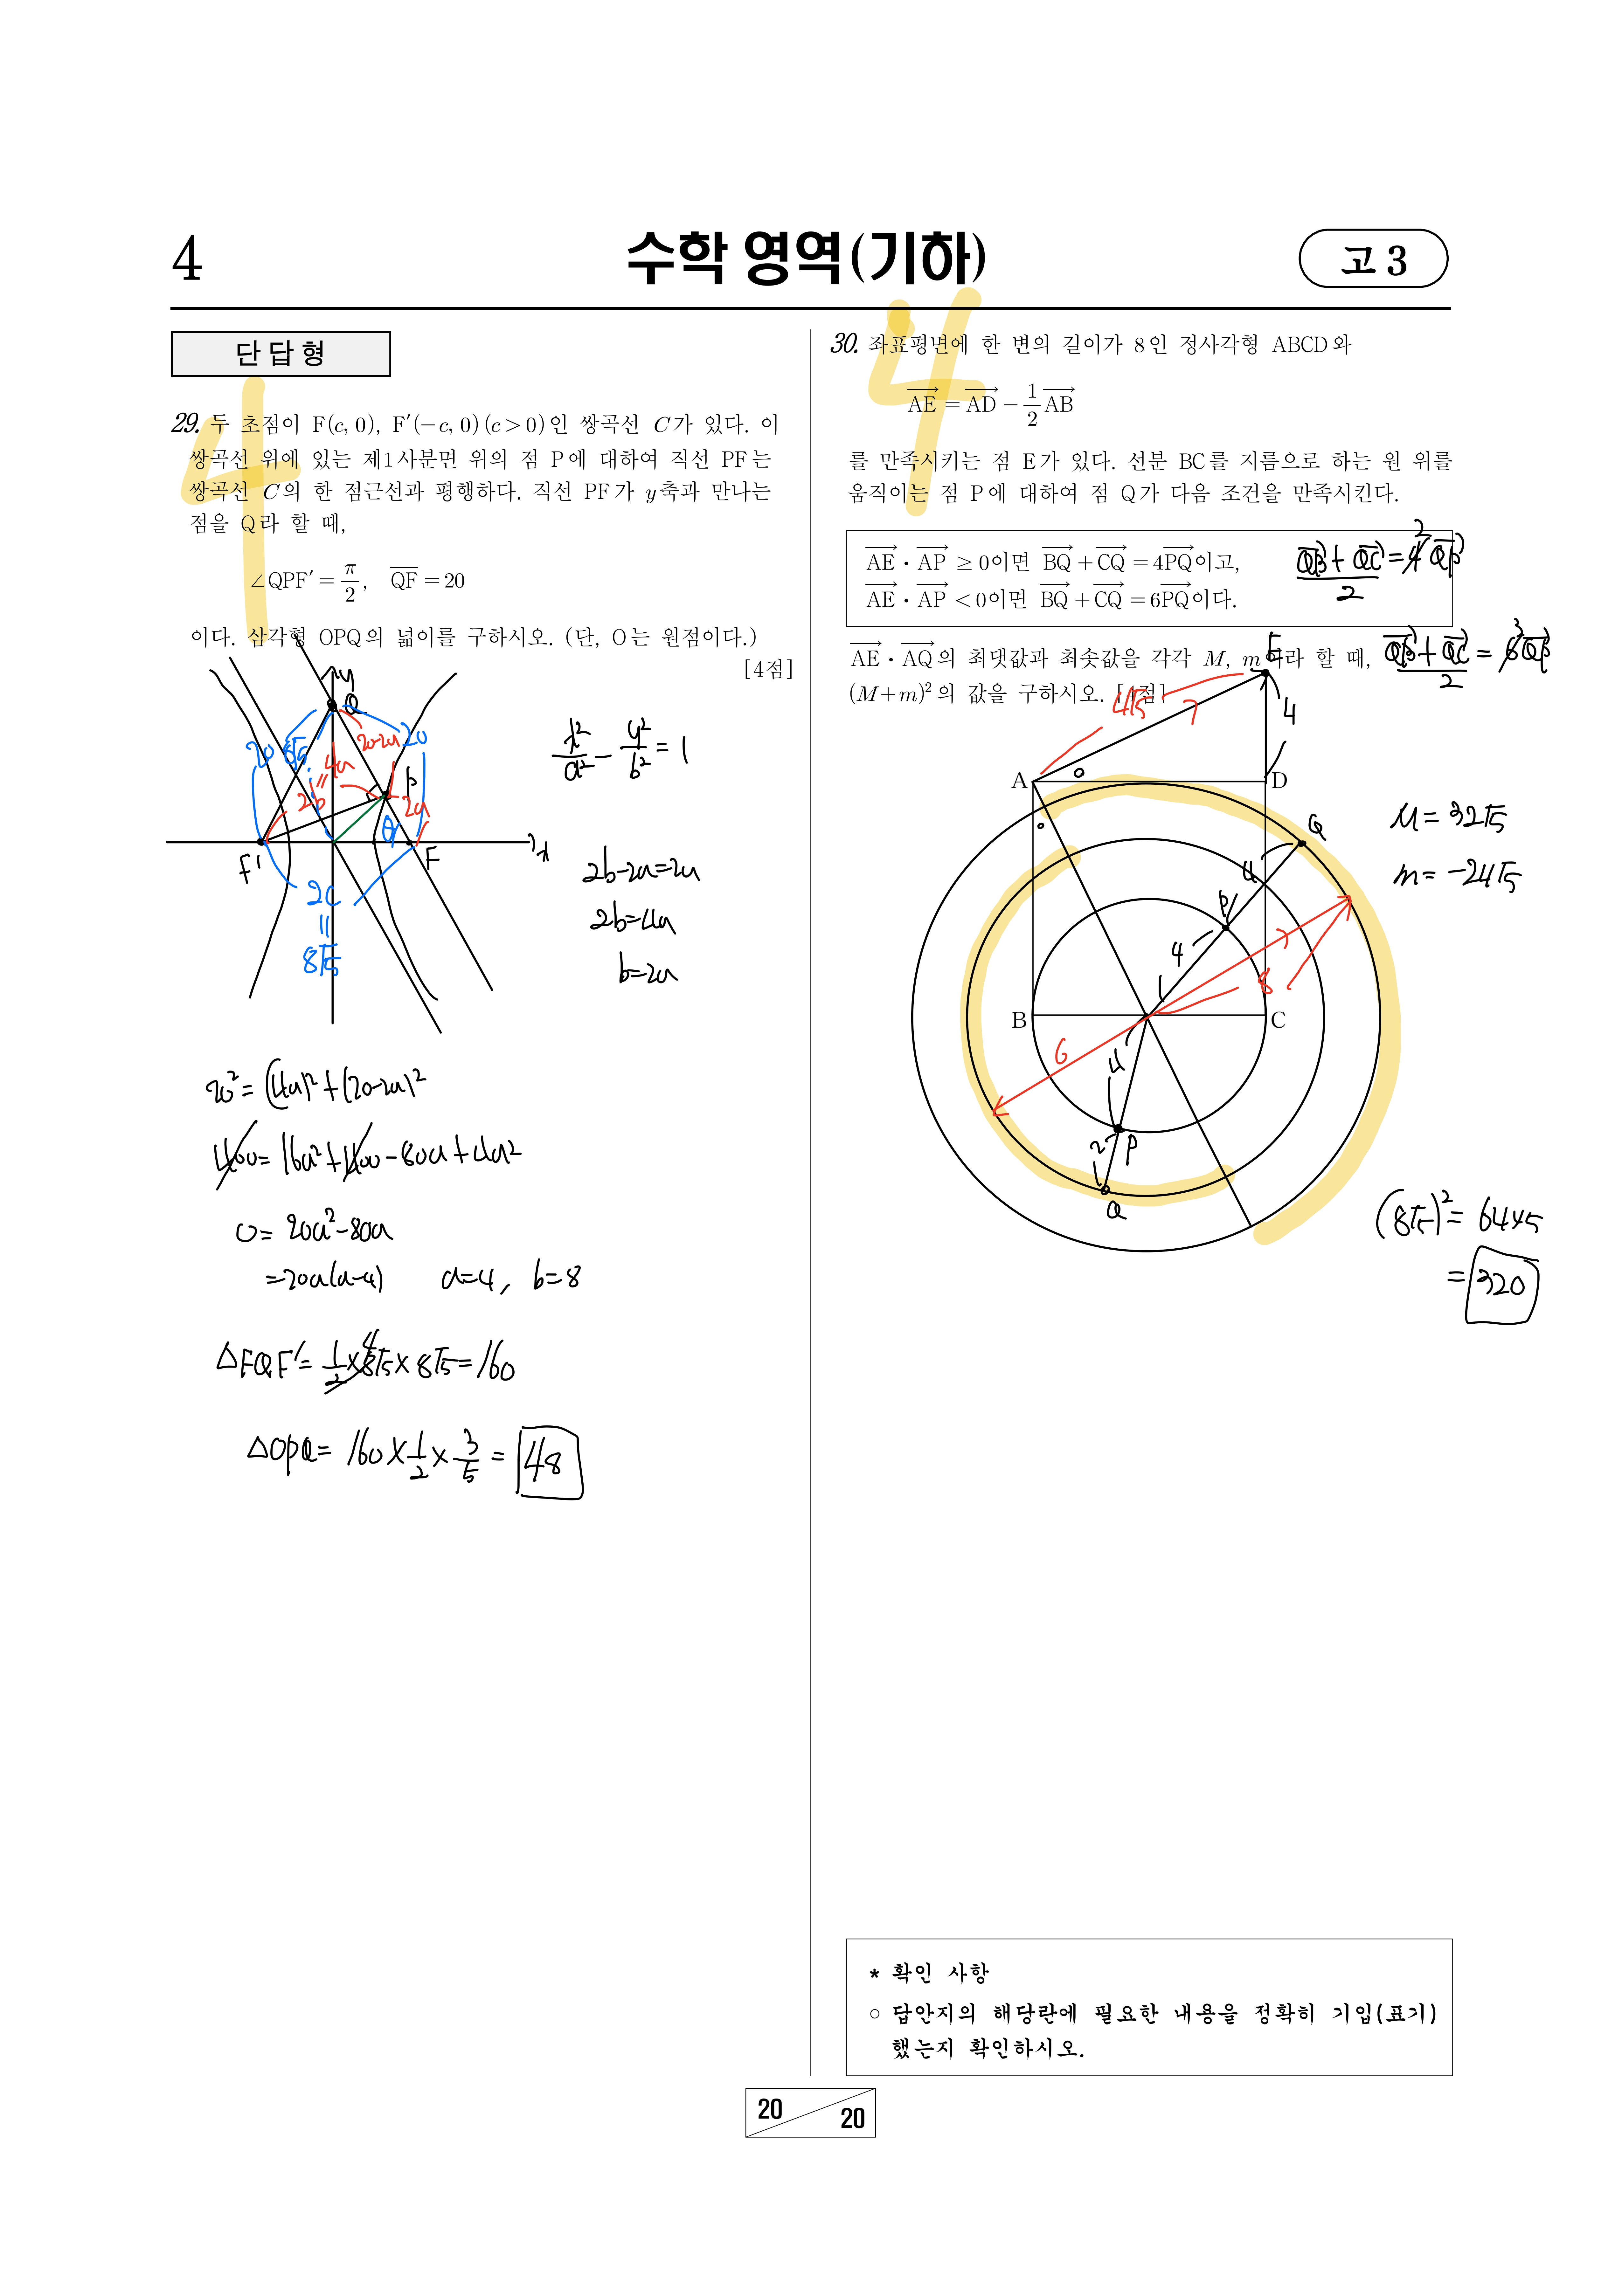 4
수학 영역(기하)
고 3
단 답 형
4
29. 두 초점이 F(c, 0), F′(−c, 0) (c > 0)인 쌍곡선 C가 있다. 이
쌍곡선 위에 있는 제1사분면 위의 점 P에 대하여 직선 PF는
쌍곡선 C의 한 점근선과 평행하다. 직선 PF가 y축과 만나는
점을 Q라 할 때,
∠QPF′ = π/2, QF = 20
이다. 삼각형 OPQ의 넓이를 구하시오. (단, O는 원점이다.)
[4점]
y
Q
20
8√5
4a
20-2a
20
P
2b
2a
θ
F′
F
x
2c
=
8√5
x²/a² − y²/b² = 1
2b-2a=2a
2b=4a
b=2a
20² = (4a)² + (20-2a)²
400 = 16a² + 400 - 80a + 4a²
0 = 20a² - 80a
= 20a(a-4) a=4, b=8
△FQF′ = 1/2 × 8√5 × 8√5 = 160
4
△OPQ = 160 × 1/2 × 3/5 = 48
4
30. 좌표평면에 한 변의 길이가 8인 정사각형 ABCD와
AE = AD − 1/2 AB
를 만족시키는 점 E가 있다. 선분 BC를 지름으로 하는 원 위를
움직이는 점 P에 대하여 점 Q가 다음 조건을 만족시킨다.
AE • AP ≥ 0이면 BQ + CQ = 4PQ이고,
AE • AP < 0이면 BQ + CQ = 6PQ이다.
(QB + QC)/2 = 4QP
2
(QB + QC)/2 = 6QP
3
AE • AQ의 최댓값과 최솟값을 각각 M, m이라 할 때,
(M+m)²의 값을 구하시오. [4점]
E
4√5
4
A
D
Q
4
P
4
8
B
C
6
4
2
P
Q
M = 32√5
m = -24√5
(8√5)² = 64×5
= 320
* 확인 사항
○ 답안지의 해당란에 필요한 내용을 정확히 기입(표기)
했는지 확인하시오.
20
20